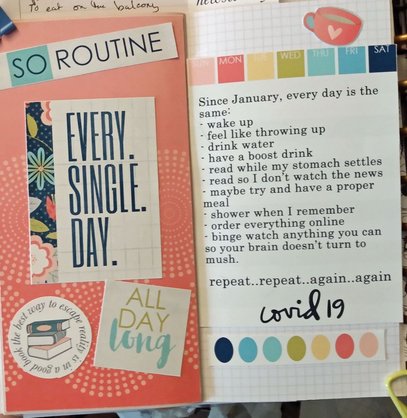 To eat on the balcony
SO ROUTINE
EVERY.
SINGLE.
DAY.
ALL
DAY
long
the best way to escape reality is in a good book
SUN MON TUE WED THU FRI SAT
Since January, every day is the
same:
- wake up
- feel like throwing up
- drink water
- have a boost drink
- read while my stomach settles
- read so I don't watch the news
- maybe try and have a proper
meal
- shower when I remember
- order everything online
- binge watch anything you can
so your brain doesn't turn to
mush.
repeat..repeat..again..again
covid 19